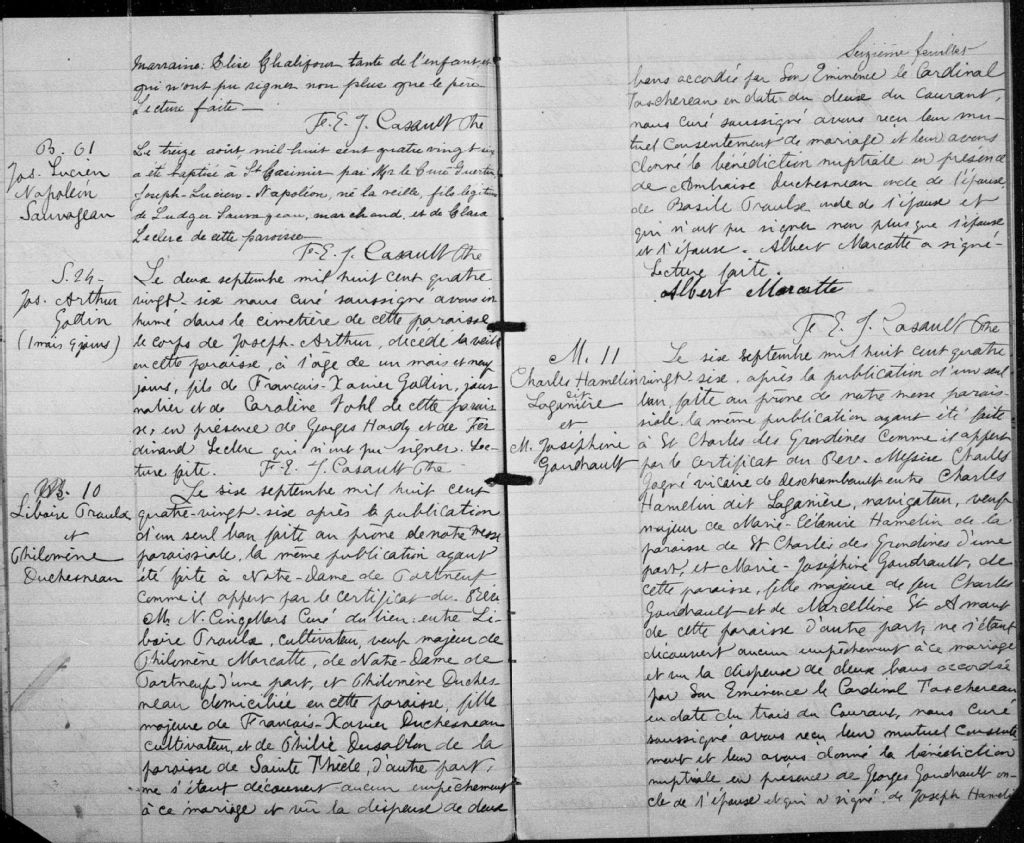 marraine: Elise Chalifour tante de l'enfant, et
qui n'ont pu signer non plus que le père
Lecture faite
F.-E. J. Casault Ptre
B. 61
Jos. Lucien
Napoléon
Sauvageau
Le treize août mil huit cent quatre vingt six
a été baptisé à St Casimir par Mr le Curé Guertin
Joseph-Lucien-Napoléon, né la veille, fils légitime
de Ludger Sauvageau, marchand, et de Clara
Leclerc de cette paroisse
F.-E. J. Casault Ptre
S. 24-
Jos. Arthur
Godin
(1 mois 9 jours)
Le deux septembre mil huit cent quatre
vingt-six nous curé soussigné avons in
humé dans le cimetière de cette paroisse
le corps de Joseph-Arthur, décédé la veille
en cette paroisse, à l'âge de un mois et neuf
jours, fils de François-Xavier Godin, jour
nalier et de Caroline Vohl de cette parois
se, en présence de Georges Hardy et de Fer
dinand Leclerc qui n'ont pu signer. Lec-
ture faite. F.-E. J. Casault Ptre
M. 10
Liboire Traulx
et
Philomène
Duchesneau
Le six septembre mil huit cent
quatre-vingt-six après la publication
d'un seul ban faite au prône de notre messe
paroissiale, la même publication ayant
été faite à Notre-Dame de Portneuf
comme il appert par le certificat de
Mr N. Cingmars Curé du lieu: entre Li
boire Traulx, cultivateur, veuf majeur de
Philomène Marcotte, de Notre-Dame de
Portneuf d'une part, et Philomène Duches
neau domiciliée en cette paroisse, fille
majeure de François-Xavier Duchesneau
cultivateur, et de Philie Dusablon de la
paroisse de Sainte Thècle, d'autre part,
ne s'étant découvert aucun empêchement
à ce mariage et vu la dispense de deux
Seizième feuillet
bans accordée par Son Eminence le Cardinal
Taschereau en date du deux du Courant,
nous curé soussigné avons reçu leur mu-
tuel consentement de mariage et leur avons
donné la bénédiction nuptiale en présence
de Ambroise Duchesneau oncle de l'épouse,
de Basile Traulx oncle de l'époux et
qui n'ont pu signer non plus que l'épouse
et l'époux. Albert Marcotte a signé-
Lecture faite.
Albert Marcotte
F. E. J. Casault Ptre
M. 11
Charles Hamelin
dit
Laganière
et
M. Joséphine
Gaudrault
Le six septembre mil huit cent quatre
vingt-six, après la publication d'un seul
ban, faite au prône de notre messe parois-
siale, la même publication ayant été faite
à St Charles des Grondines comme il appert
par le certificat du Rev. Messire Charles
Gagné vicaire de Deschambault entre Charles
Hamelin dit Laganière, navigateur, veuf
majeur de Marie-Célanire Hamelin de la
paroisse de St Charles des Grondines d'une
part, et Marie-Joséphine Gaudrault, de
cette paroisse, fille majeure de feu Charles
Gaudrault et de Marcelline St Amant
de cette paroisse d'autre part, ne s'étant
découvert aucun empêchement à ce mariage
et vu la dispense de deux bans accordée
par Son Eminence le Cardinal Taschereau
en date du trois du Courant, nous curé
soussigné avons reçu leur mutuel consente
ment et leur avons donné la bénédiction
nuptiale en présence de Georges Gaudrault on-
cle de l'épouse et qui a signé, de Joseph Hamelin